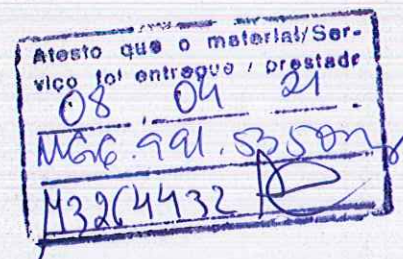 Atesto que o material/Ser-
viço foi entregue / prestado
08 04 21
MG6.991.535
M3264432